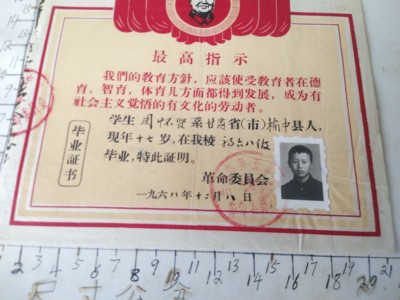 最高指示
我們的教育方針，应該使受教育者在德
育，智育，体育几方面都得到发展，成为有
社会主义觉悟的有文化的劳动者。
毕业証书
学生周怀贤系甘肃省(市)榆中县人，
现年十七岁，在我校初六八级
毕业，特此証明。
革命委員会
一九六八年十二月八日
2 3 4 5 6 7 8 9 10 11 12 13 14 15 16 17 18 19 20 21